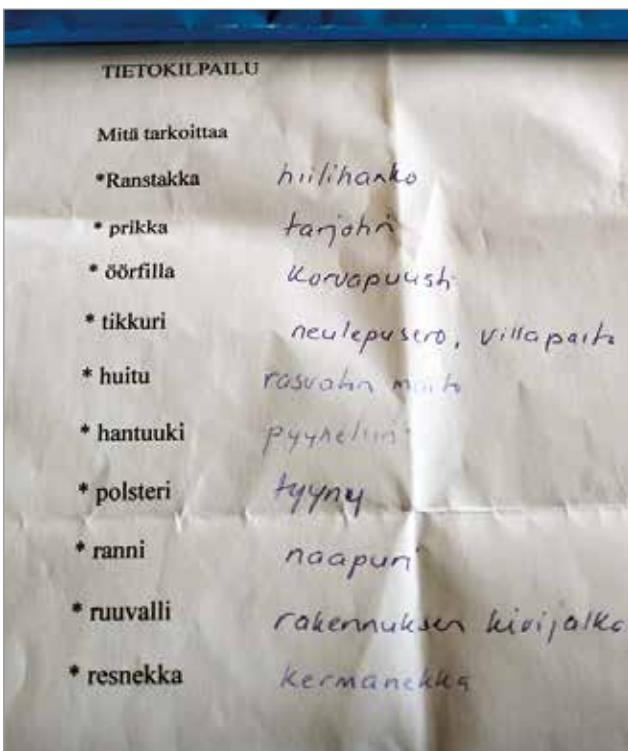 TIETOKILPAILU
Mitä tarkoittaa
*Ranstakka hiilihanko
* prikka tarjotin
* öörfilla korvapuusti
* tikkuri neulepusero, villapaita
* huitu rasvatin maito
* hantuuki pyyheliin
* polsteri tyyny
* ranni naapuri
* ruuvalli rakennuksen kivijalka
* resnekka kermanekka